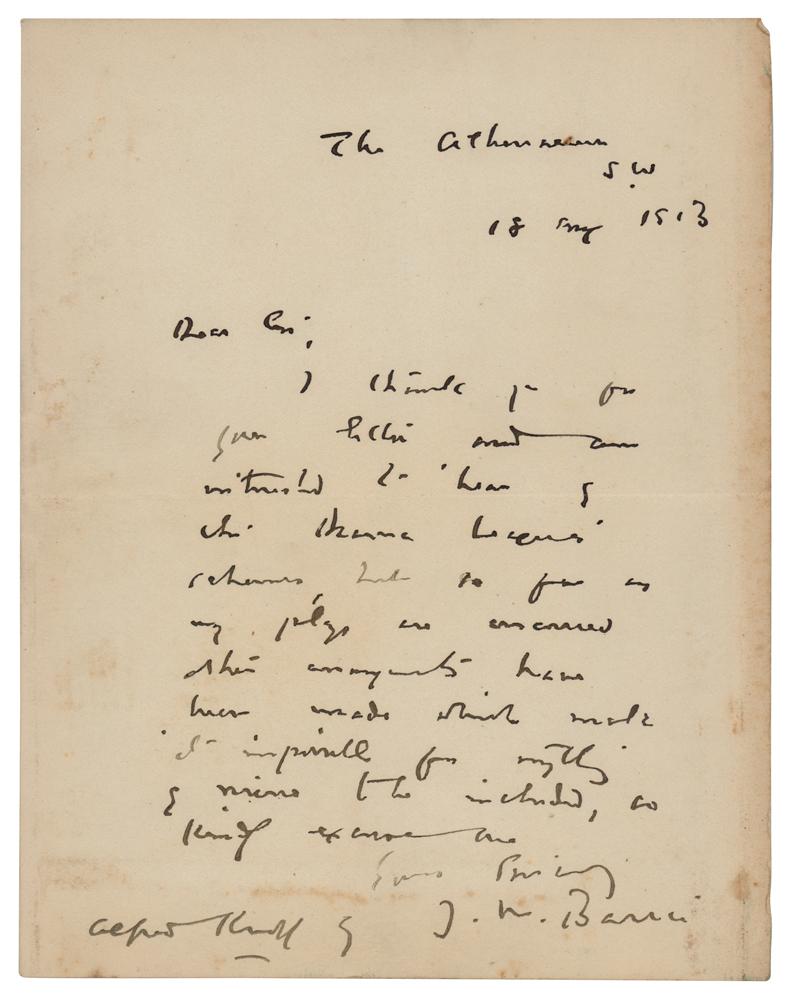 The Athenaeum
S.W
18 Aug 1913
Dear Sir,
I thank you for
your letter and am
interested to hear of
the Drama League's
schemes, but so far as
my plays are concerned
other arrangements have
been made which make
it impossible for anything
of mine to be included, so
kindly excuse me
Yours sincerely
J. M. Barrie
Alfred Knopf Esq